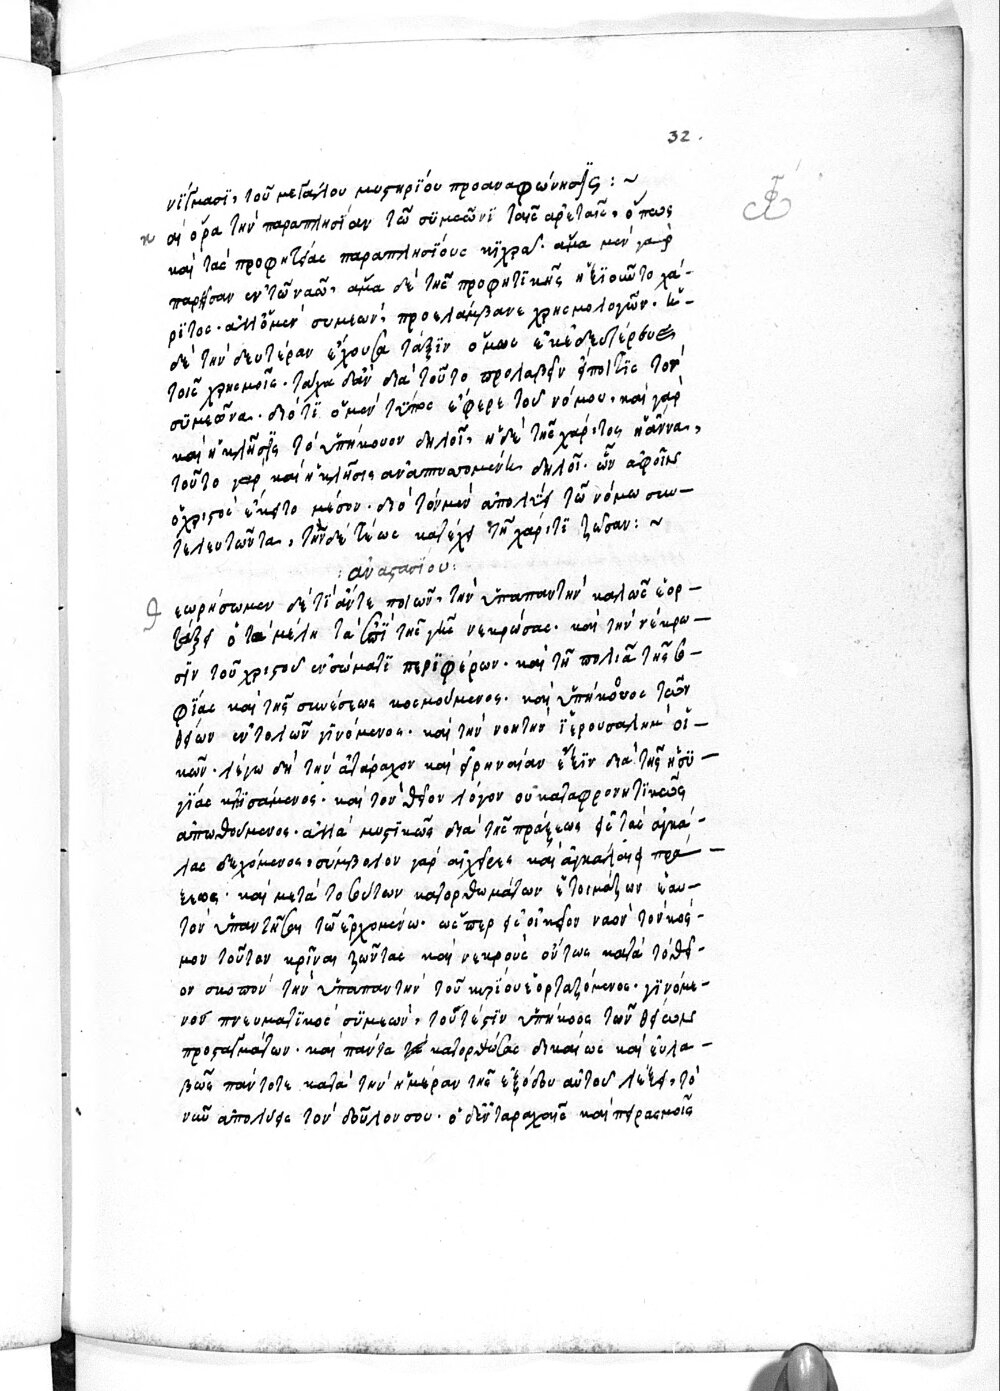 32.
νίγμασι, τοῦ μεγάλου μυστηρίου προαναφώνησις : ~
κ αὶ ὅρα τὴν παραπλησίαν τῶ συμεῶνι ταῖς ἀρεταῖς, ὅπως
καὶ τὰς προφητείας παραπλησίους κέχρηται. ἅμα μὲν γὰρ
παρῆσαν ἐν τῶ ναῶ, ἅμα δὲ τῆς προφητικῆς ἠξιοῦντο χά-
ριτος. ἀλλ' ὁ μὲν συμεὼν, προελάμβανε χρησμολογῶν. ἡ
δὲ τὴν δευτέραν ἔχουσα τάξιν ὅμως
τοῖς χρησμοῖς. τάχα δ' ἂν διὰ τοῦτο προλαβεῖν εἴποι τις τὸν
συμεῶνα. διότι ὁ μὲν τύπος ἔφερε τοῦ νόμου, καὶ γὰρ
καὶ ἡ κλῆσις τὸ ὑπήκουον δηλοῖ, ἡ δὲ τῆς χάριτος ἡ ἄννα,
τοῦτο γὰρ καὶ ἡ κλῆσις δηλοῖ. ὧν ἀμφοῖν
ὁ χριστὸς ἔκειτο μέσον. διὸ τὸν μὲν ἀπολύει τῶ νόμω συν-
τελευτῶντα, τὴν δὲ τέως κατέχει τῆ χάριτι ζῶσαν : ~
: ἀναστασίου :
θ εωρήσωμεν δὲ τί ἄν τε ποιῶν, τὴν ὑπαπαντὴν καλῶς ἑορ-
τάζει ὁ τὰ μέλη τὰ ἐπὶ τῆς γῆς νεκρώσας. καὶ τὴν νέκρω-
σιν τοῦ χριστοῦ ἐν σώματι περιφέρων. καὶ τῆ πολιᾶ τῆς σο-
φίας καὶ τῆς συνέσεως κοσμούμενος. καὶ ὑπήκοος τῶν
θείων ἐντολῶν γινόμενος. καὶ τὴν νοητὴν ἱερουσαλὴμ οἰ-
κῶν. λέγω δὴ τὴν ἀτάραχον καὶ εἰρηναίαν ἕξιν διὰ τῆς ἡσυ-
χίας κτισάμενος. καὶ τὸν θεῖον λόγον οὐ καταφρονητικῶς
ἀπωθούμενος. ἀλλὰ μυστικῶς διὰ τῆς πράξεως εἰς τὰς ἀγκά-
λας δεχόμενος, σύμβολον γὰρ αἱ χεῖρες καὶ αἱ ἀγκάλαι πρά-
ξεως. καὶ μετὰ τοσούτων κατορθωμάτων ἑτοιμάζων ἑαυ-
τὸν ὑπαντῆσαι τῶ ἐρχομένω. ὥσπερ εἰς οἰκεῖον ναὸν τὸν κόσ-
μον τοῦτον κρῖναι ζῶντας καὶ νεκροὺς οὕτως κατὰ τὸ θεῖ-
ον σκοπὸν τὴν ὑπαπαντὴν τοῦ κυρίου ἑορταζόμενος. γινόμε-
νος πνευματικὸς συμεὼν, τουτέστιν ὑπήκοος τῶν θείων
προσταγμάτων. καὶ πάντα τὰ κατορθώσας δικαίως καὶ εὐλα-
βῶς πάντοτε κατὰ τὴν ἡμέραν τῆς ἐξόδου αὐτοῦ λέγει, τὸ
νῦν ἀπολύεις τὸν δοῦλον σου. ὁ δὲ ἐν ταραχαῖς καὶ πειρασμοῖς